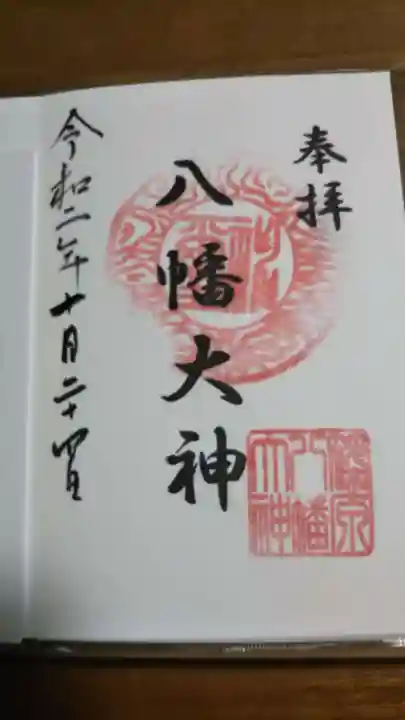 奉拝
八幡大神
令和二年十月二十四日
八幡
大神